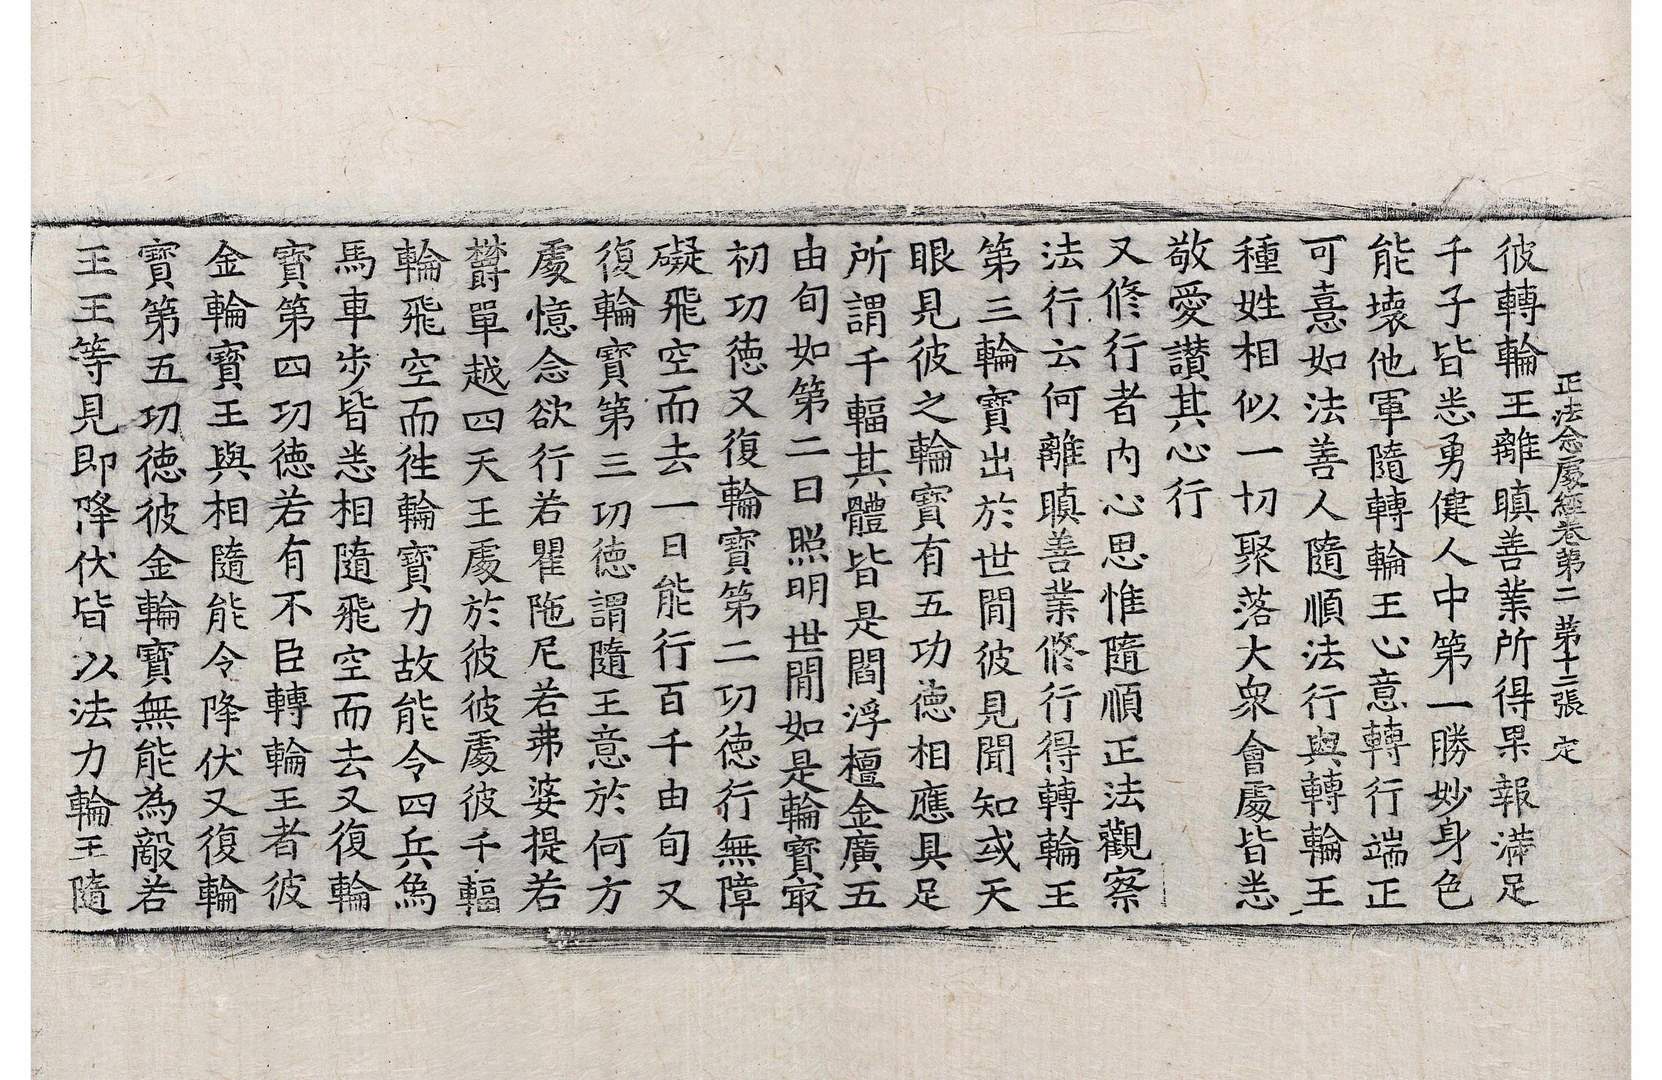 正法念處經卷第二 第十二張 定
彼轉輪王離瞋善業所得果報滿足
千子皆悉勇健人中第一勝妙身色
能壞他軍隨轉輪王心意轉行端正
可憙如法善人隨順法行與轉輪王
種姓相似一切聚落大衆會處皆悉
敬愛讃其心行
又修行者内心思惟隨順正法觀察
法行云何離瞋善業修行得轉輪王
第三輪寶出於世閒彼見聞知或天
眼見彼之輪寶有五功徳相應具足
所謂千輻其體皆是閻浮檀金廣五
由旬如第二日照明世閒如是輪寶㝡
初功徳又復輪寶第二功徳行無障
礙飛空而去一日能行百千由旬又
復輪寶第三功徳謂隨王意於何方
處憶念欲行若瞿陁尼若弗婆提若
欝單越四天王處於彼彼處彼千輻
輪飛空而徃輪寶力故能令四兵爲
馬車步皆悉相隨飛空而去又復輪
寶第四功徳若有不臣轉輪王者彼
金輪寶王與相隨能令降伏又復輪
寶第五功徳彼金輪寶無能為敵若
王王等見即降伏皆以法力輪王隨